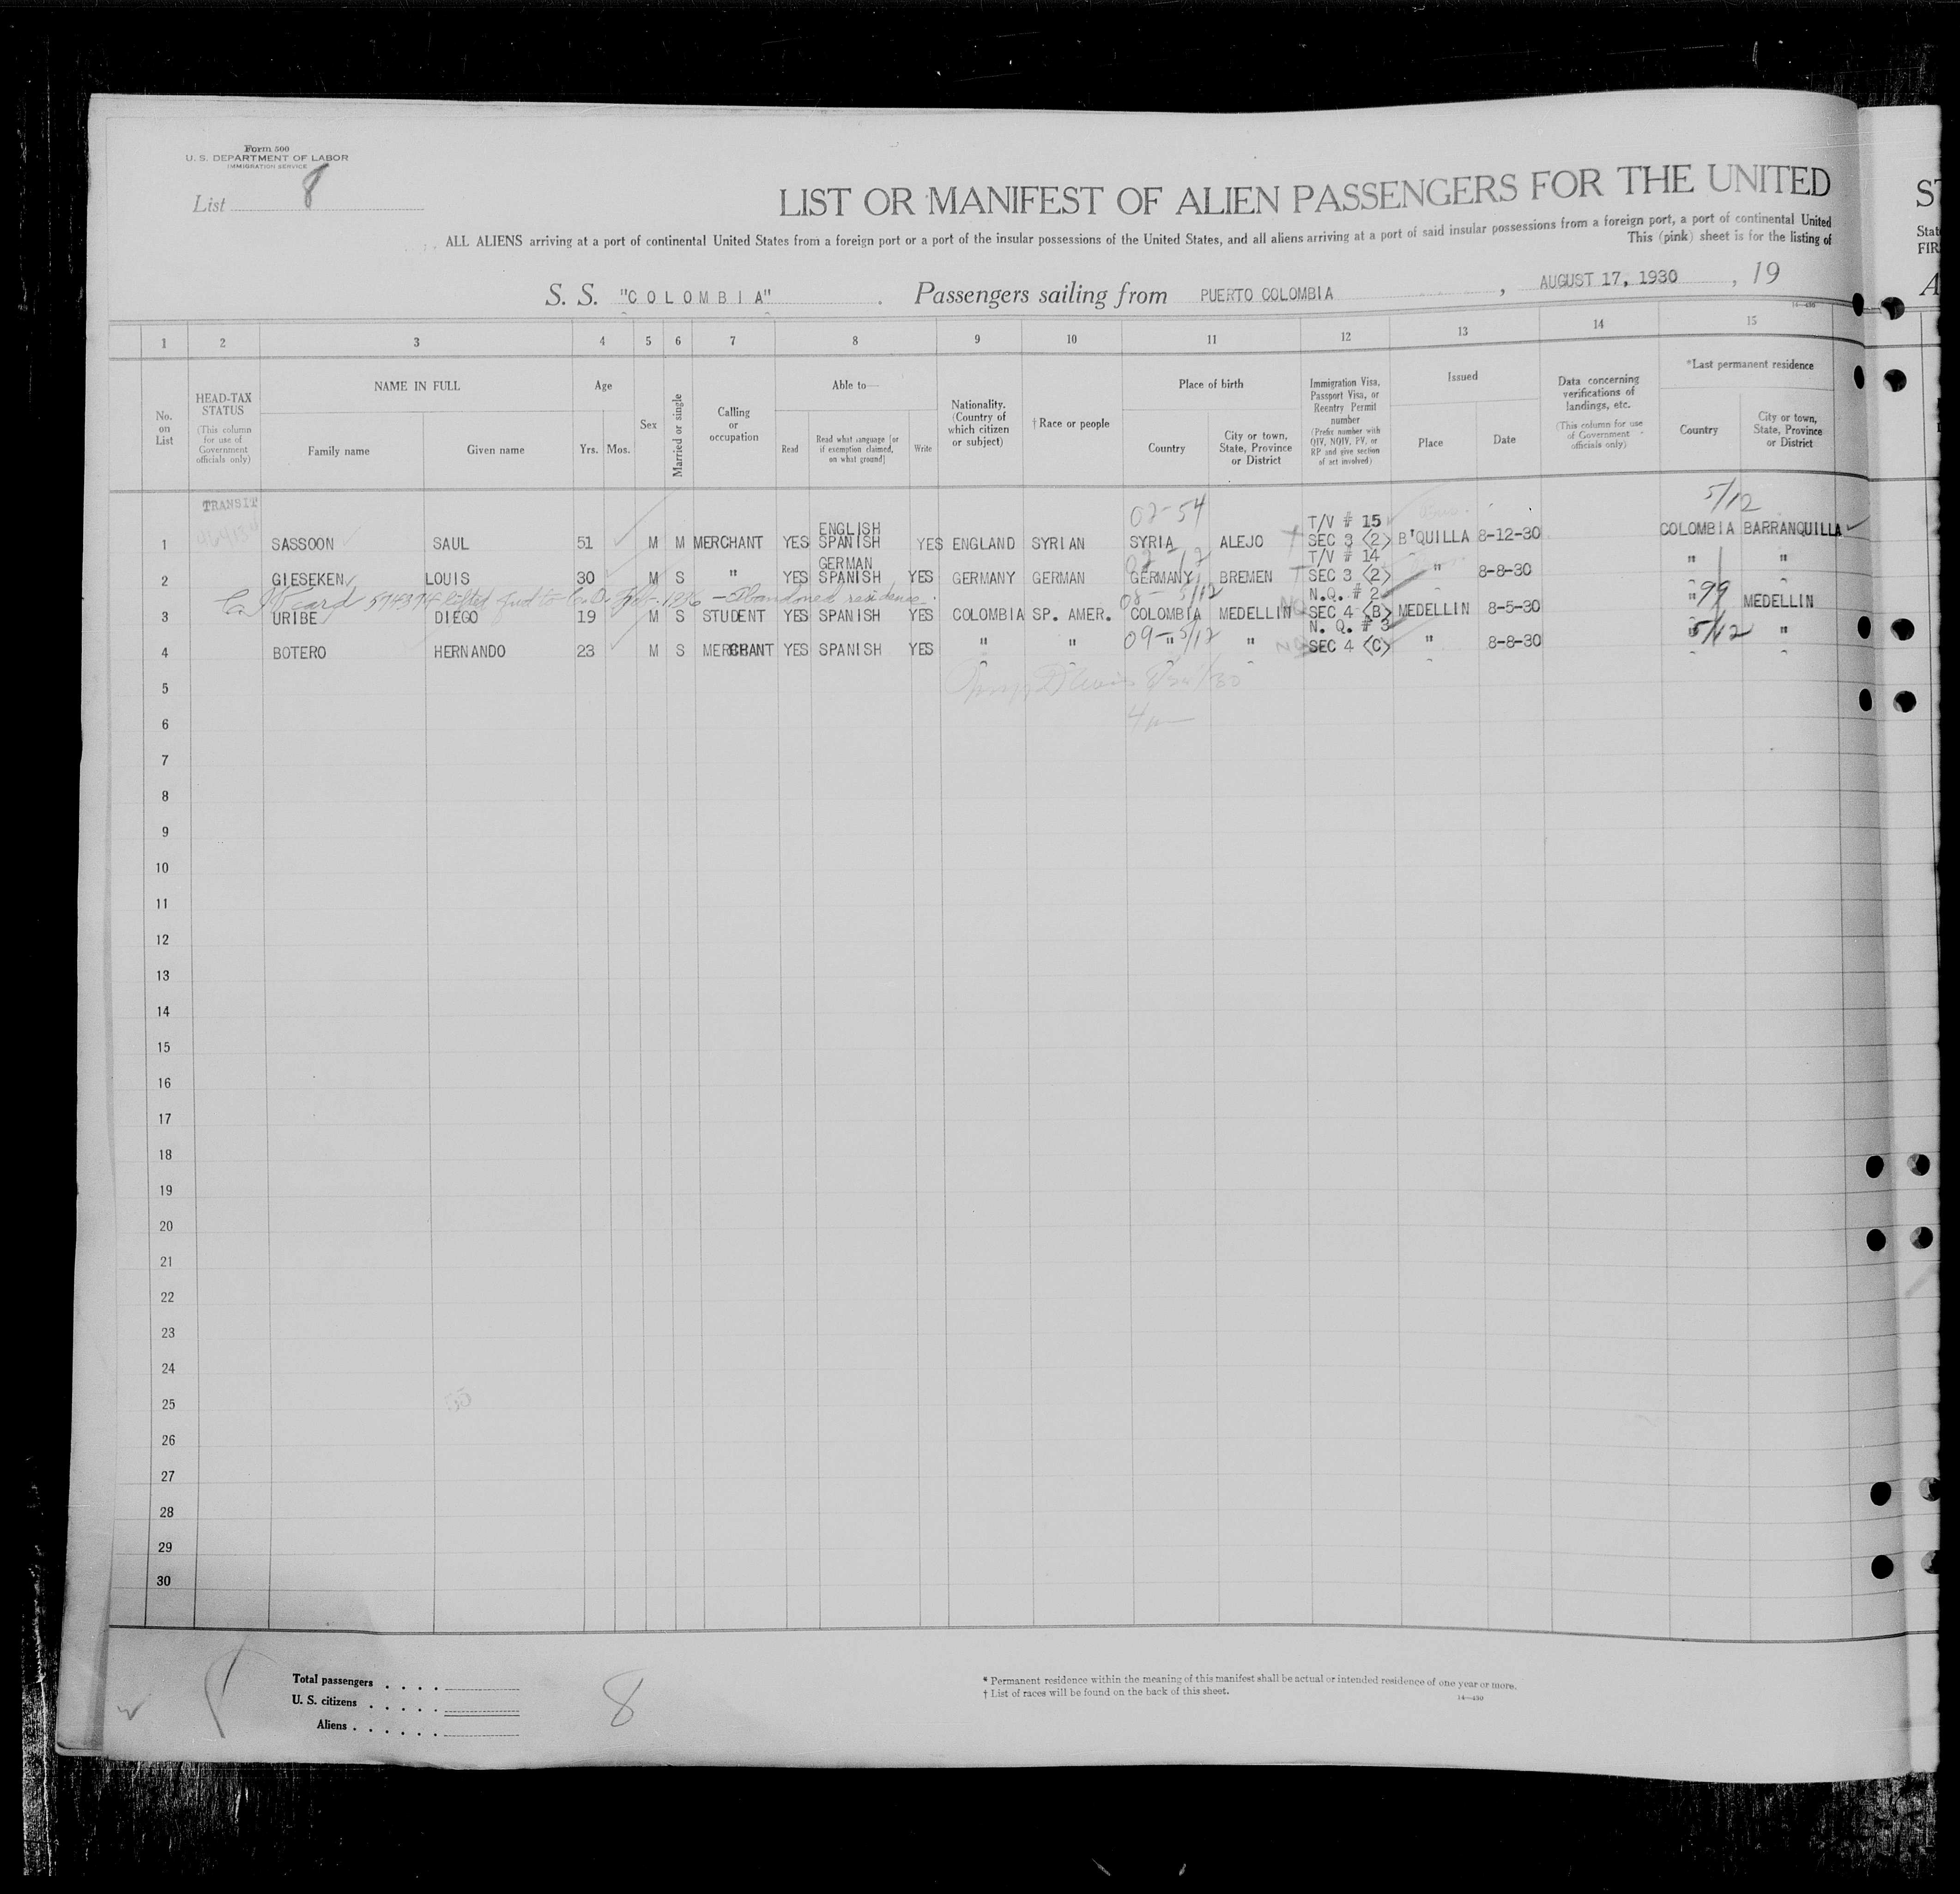 Form 500
U. S. DEPARTMENT OF LABOR
IMMIGRATION SERVICE
List 8
LIST OR MANIFEST OF ALIEN PASSENGERS FOR THE UNITED
ALL ALIENS arriving at a port of continental United States from a foreign port or a port of the insular possessions of the United States, and all aliens arriving at a port of said insular possessions from a foreign port, a port of continental United
This (pink) sheet is for the listing of
S. S. "COLOMBIA" Passengers sailing from PUERTO COLOMBIA, AUGUST 17, 1930, 19
14—430
1 2 3 4 5 6 7 8 9 10 11 12 13 14 15
No. on List
HEAD-TAX STATUS (This column for use of Government officials only)
NAME IN FULL
Family name Given name
Age
Yrs. Mos.
Sex
Married or single
Calling or occupation
Able to—
Read Read what language [or if exemption claimed, on what ground] Write
Nationality. (Country of which citizen or subject)
†Race or people
Place of birth
Country City or town, State, Province or District
Immigration Visa, Passport Visa, or Reentry Permit number (Prefix number with QIV, NQIV, PV, or RP and give section of act involved)
Issued
Place Date
Data concerning verifications of landings, etc. (This column for use of Government officials only)
*Last permanent residence
Country City or town, State, Province or District
TRANSIT 02-54 5/12
ENGLISH T/V # 15
1 SASSOON SAUL 51 M M MERCHANT YES SPANISH YES ENGLAND SYRIAN SYRIA ALEJO SEC 3 (2) B'QUILLA 8-12-30 COLOMBIA BARRANQUILLA
GERMAN T/V # 14
2 GIESEKEN LOUIS 30 M S " YES SPANISH YES GERMANY GERMAN GERMANY BREMEN SEC 3 (2) " 8-8-30 " "
card lifted - Abandoned residence. 08-5/12 N.Q. # 2 99
3 URIBE DIEGO 19 M S STUDENT YES SPANISH YES COLOMBIA SP. AMER. COLOMBIA MEDELLIN SEC 4 (B) MEDELLIN 8-5-30 " MEDELLIN
09-5/12 N. Q. # 3 5/12
4 BOTERO HERNANDO 23 M S MERCHANT YES SPANISH YES " " " " SEC 4 (C) " 8-8-30 " "
5
6
7
8
9
10
11
12
13
14
15
16
17
18
19
20
21
22
23
24
25
26
27
28
29
30
Total passengers . . . .
U. S. citizens . . . . .
Aliens . . . . . .
8
* Permanent residence within the meaning of this manifest shall be actual or intended residence of one year or more.
† List of races will be found on the back of this sheet.
14—430